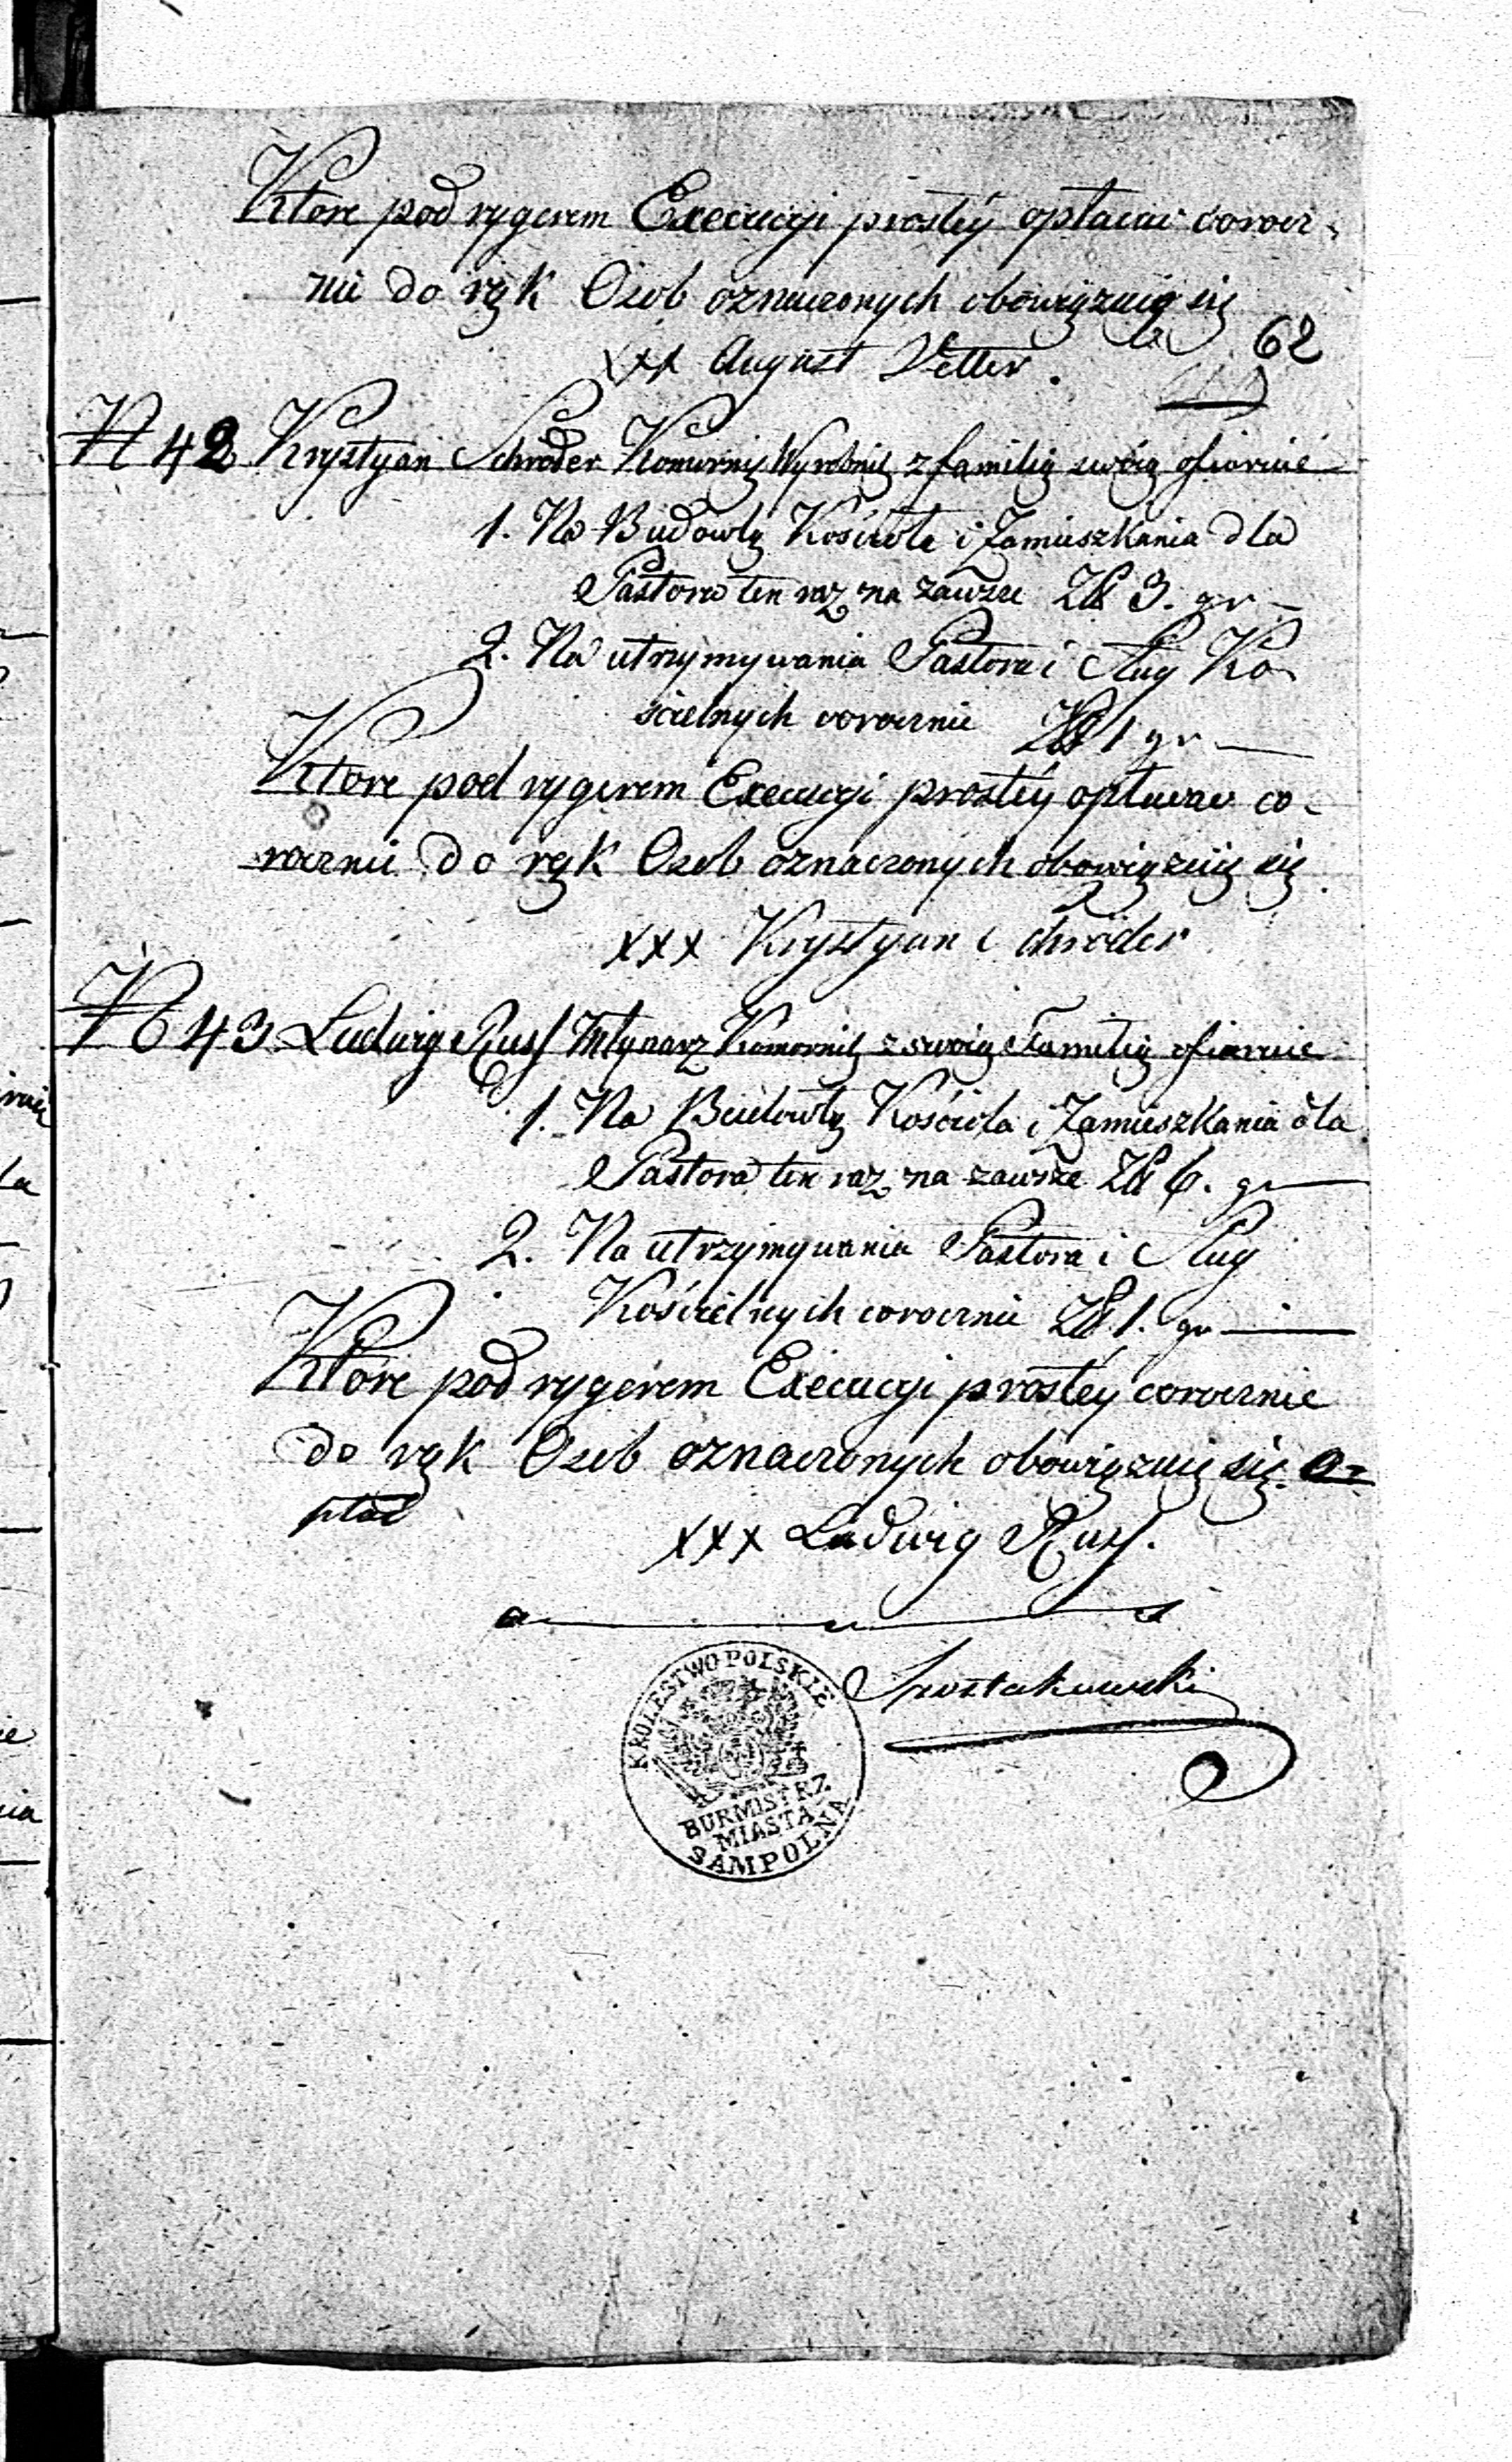 Ktore pod rygorem Execucyi prostéy opłacać corocz-
nie do rąk Osob oznaczonych obowięzuię się
xxx August Vetter.
62
N 42 Krystyan Schröder Komornik Wyrobnik z familią swoią ofiaruie
1. Na Budowlę Kościoła i Zamieszkania dla
Pastora ten raz na zawsze Zł 3. gr —
2. Na utrzymywania Pastora i Sług Ko-
ścielnych corocznie Zł 1 gr —
Ktore pod rygorem Execucyi prostéy opłacać co-
rocznie do rąk Osob oznaczonych obowięzuię się.
xxx Krystyan Schröder
No 43 Ludwig Russ Młynarz Komornik z swoią Familią ofiaruie
1. Na Budowlę Kościoła i Zamieszkania dla
Pastora ten raz na zawsze Zł 6. gr —
2. Na utrzymywania Pastora i Sług
Kościelnych corocznie Zł 1. gr —
Ktore pod rygorem Execucyi prostéy corocznie
do rąk Osob oznaczonych obowięzuię się. o-
płac
xxx Ludwig Russ.
KROLESTWO POLSKIE
BURMISTRZ
MIASTA
SAMPOLNA